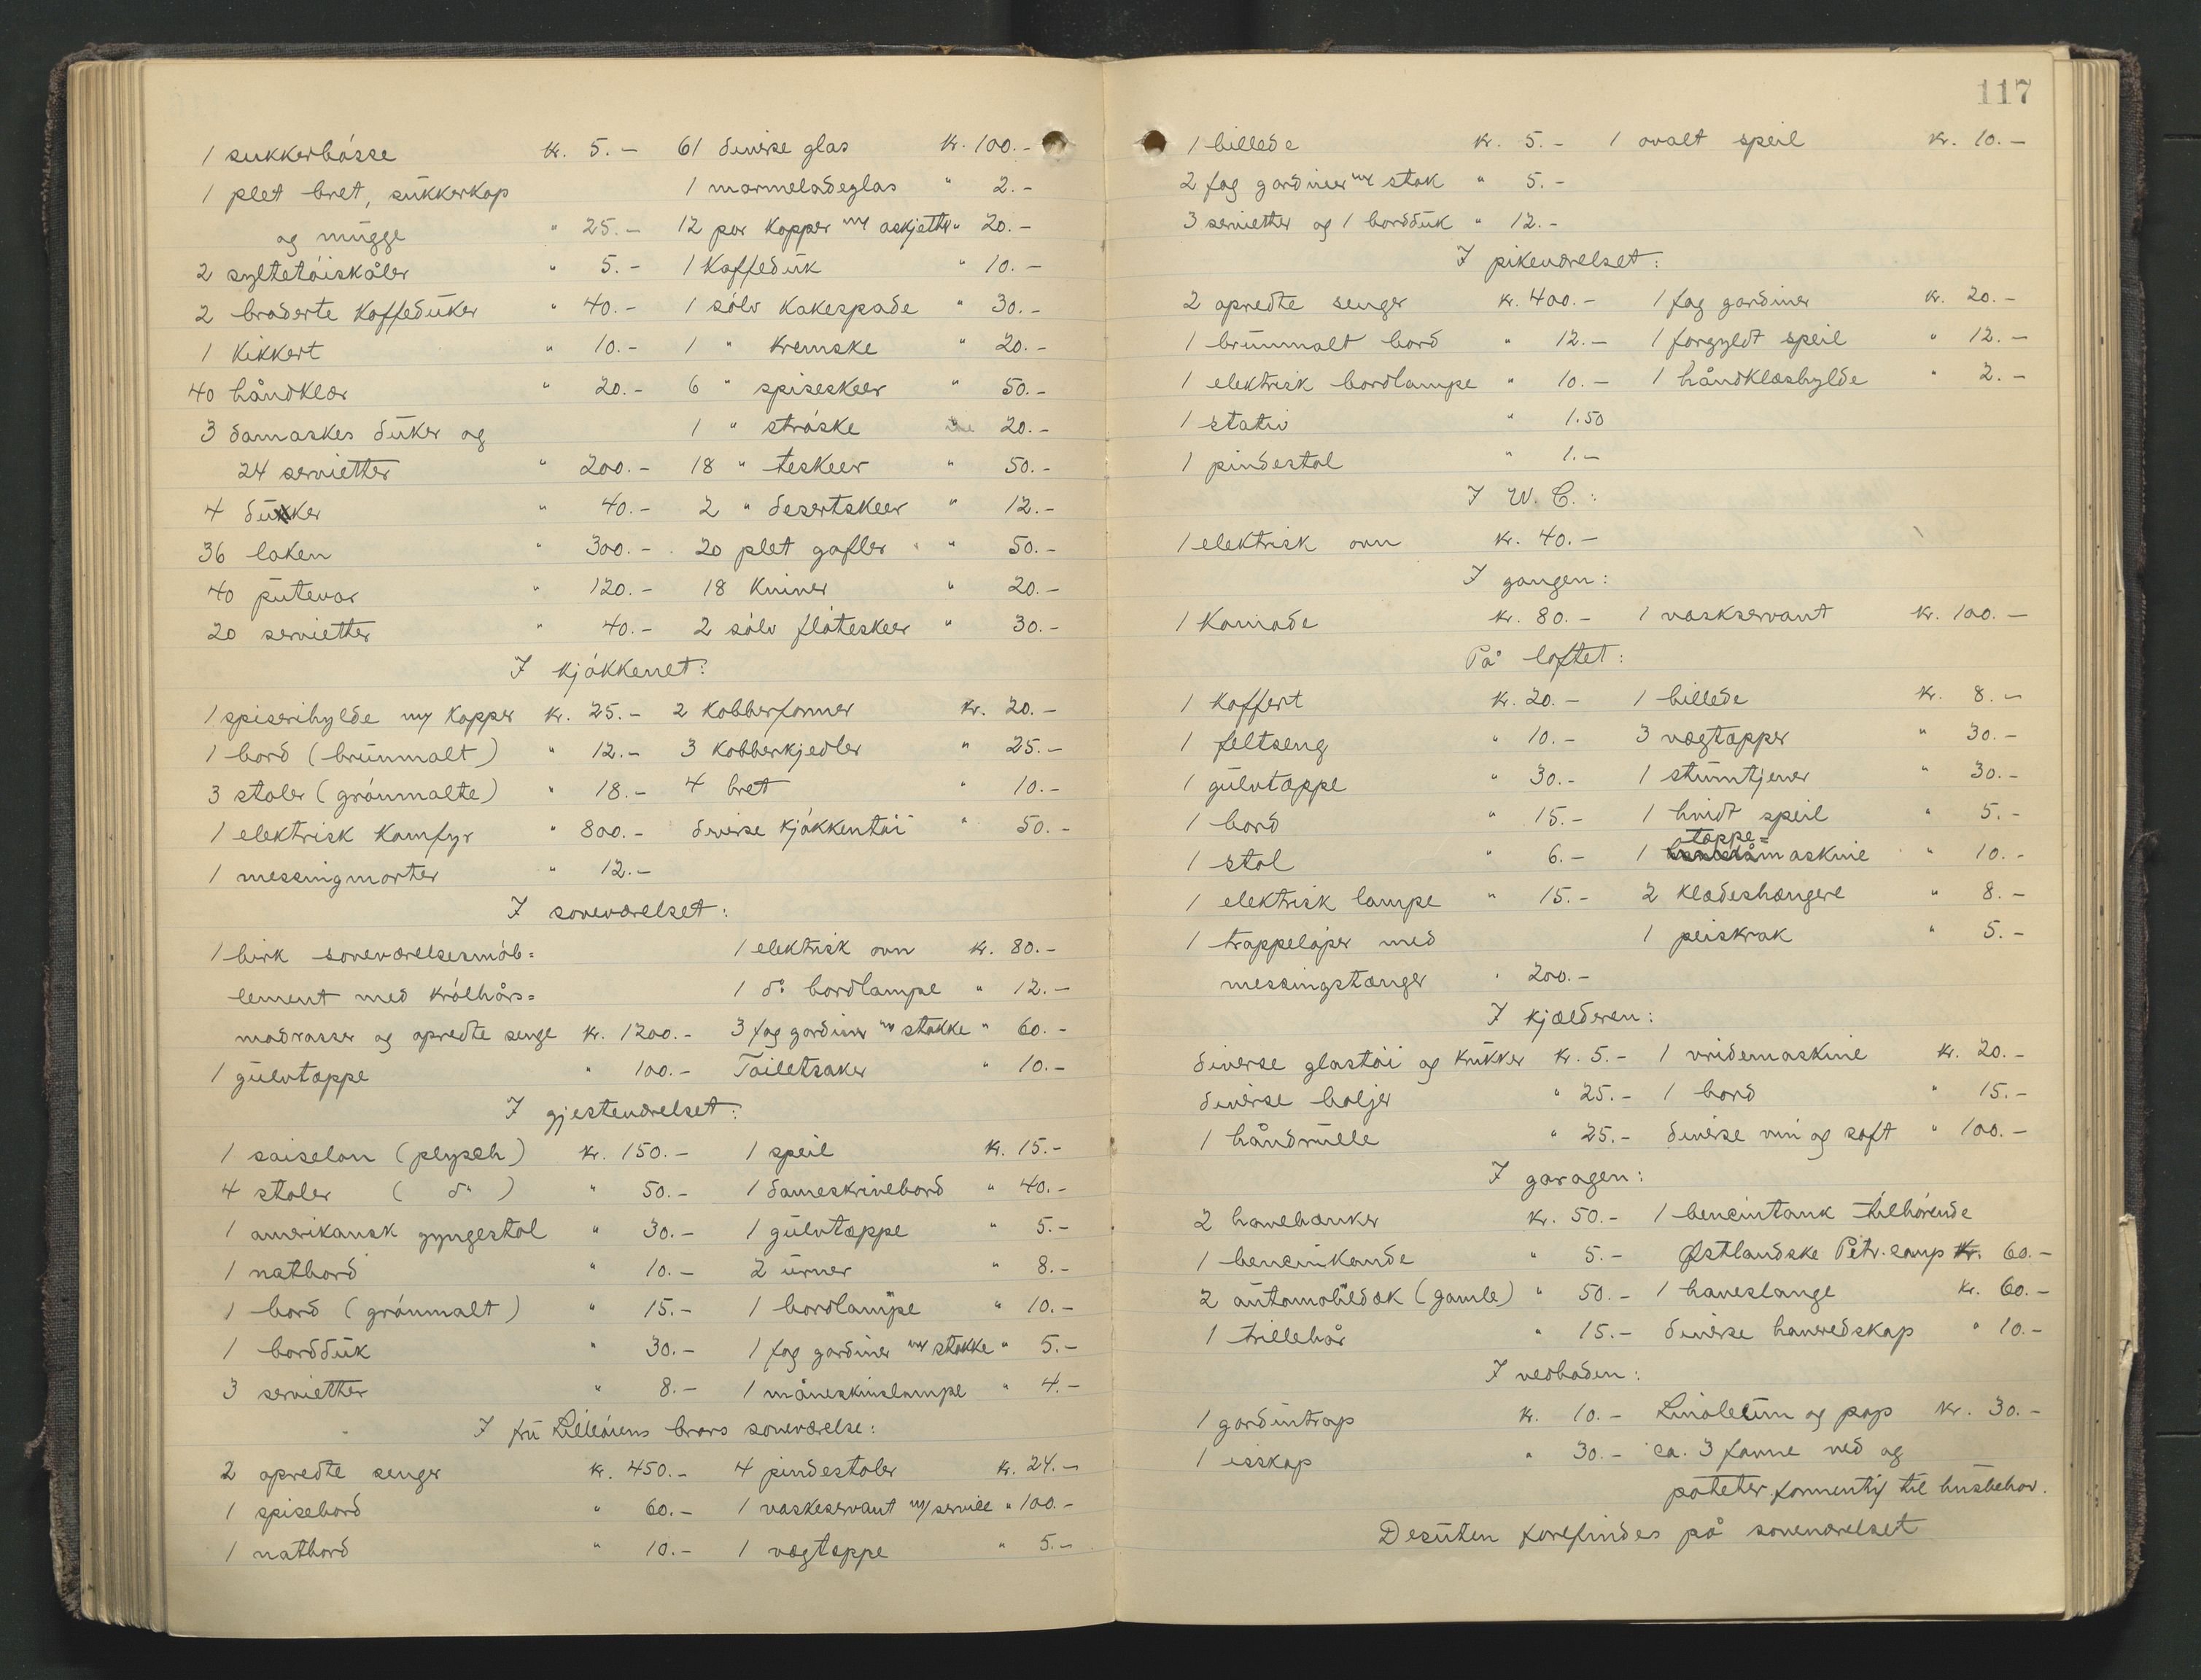 1 sukkerbøsse kr. 5.- 61 diverse glas kr. 100.-
1 plet bret, sukkerkop 1 marmeladeglas " 2.-
og mugge " 25.- 12 par kopper m/ askjetter " 20.-
2 syltetøiskåler " 5.- 1 kaffeduk " 10.-
2 broderte kaffeduker " 40.- 1 sølv kakespade " 30.-
1 kikkert " 10.- 1 " kremske " 20.-
40 håndklær " 20.- 6 " spiseskeer " 50.-
3 damaskes duker og 1 " strøske " 20.-
24 servietter " 200.- 18 " teskeer " 50.-
4 duker " 40.- 2 " desertskeer " 12.-
36 laken " 300.- 20 plet gafler " " 50.-
40 putevar " 120.- 18 kniver " 20.-
20 servietter " 40.- 2 sølv fløteskeer " 30.-
I kjøkkenet:
1 spiserihylde m/ kopper kr. 25.- 2 kobberformer kr. 20.-
1 bord (brunmalt) " 12.- 3 kobberkjedler " 25.-
3 stoler (grønmalte) " 18.- 4 bret " 10.-
1 elektrisk komfyr " 800.- diverse kjøkkentøi " 50.-
1 messingmorter " 12.-
I soveværelset:
1 birk soveværelsesmøb= 1 elektrisk ovn kr. 80.-
lement med krølhårs= 1 do bordlampe " 12.-
madrasser og opredte senge kr. 1200.- 3 fag gardiner m/ stokke " 60.-
1 gulvtæppe " 100.- Toiletsaker " 10.-
I gjesteværelset:
1 saiselon (plysch) kr. 150.- 1 speil kr. 15.-
4 stoler ( do ) " 50.- 1 dameskrivebord " 40.-
1 amerikansk gyngestol " 30.- 1 gulvtæppe " 5.-
1 natbord " 10.- 2 urner " 8.-
1 bord (grønmalt) " 15.- 1 bordlampe " 10.-
1 bordduk " 30.- 1 fag gardiner m/ stokke " 5.-
3 servietter " 8.- 1 måneskinslampe " 4.-
I fru Lilleøiens brors soveværelse:
2 opredte senger kr. 450.- 4 pindestoler kr. 24.-
1 spisebord " 60.- 1 vaskeservant m/ servise " 100.-
1 natbord " 10.- 1 vægtæppe " 5.-
117
1 billede kr. 5.- 1 ovalt speil kr. 10.-
2 fag gardiner m/ stok " 5.-
3 servietter og 1 bordduk " 12.-
I pikeværelset:
2 opredte senger kr. 400.- 1 fag gardiner kr. 20.-
1 brunmalt bord " 12.- 1 forgyldt speil " 12.-
1 elektrisk bordlampe " 10.- 1 håndklæshylde " 2.-
1 stativ " 1.50
1 pindestol " 1.-
I W.C.:
1 elektrisk ovn kr. 40.-
I gangen:
1 komode kr. 80.- 1 vaskservant kr. 100.-
På loftet:
1 koffert kr. 20.- 1 billede kr. 8.-
1 feltseng " 10.- 3 vægtæpper " 30.-
1 gulvtæppe " 30.- 1 stumtjener " 30.-
1 bord " 15.- 1 hvidt speil " 5.-
1 stol " 6.- 1 tæppe-maskine " 10.-
1 elektrisk lampe " 15.- 2 klædeshængere " 8.-
1 trappeløper med 1 peiskrak " 5.-
messingstænger " 200.-
I kjælderen:
diverse glastøi og krukker kr. 5.- 1 vridemaskine kr. 20.-
diverse baljer " 25.- 1 bord " 15.-
1 håndrulle " 25.- diverse vin og saft " 100.-
I garagen:
2 havebænker kr. 50.- 1 bencintank tilhørende
1 bencinkande " 5.- Østlandske Petr. comp kr. 60.-
2 automobildæk (gamle) " 50.- 1 haveslange kr. 60.-
1 trillebår " 15.- diverse haveredskap " 10.-
I vedboden:
1 gardintrap kr. 10.- Linoleum og pap kr. 30.-
1 isskap " 30.- ca. 3 favne ved og
poteter formentlig til husbehov.
Desuten forefindes på soveværelset